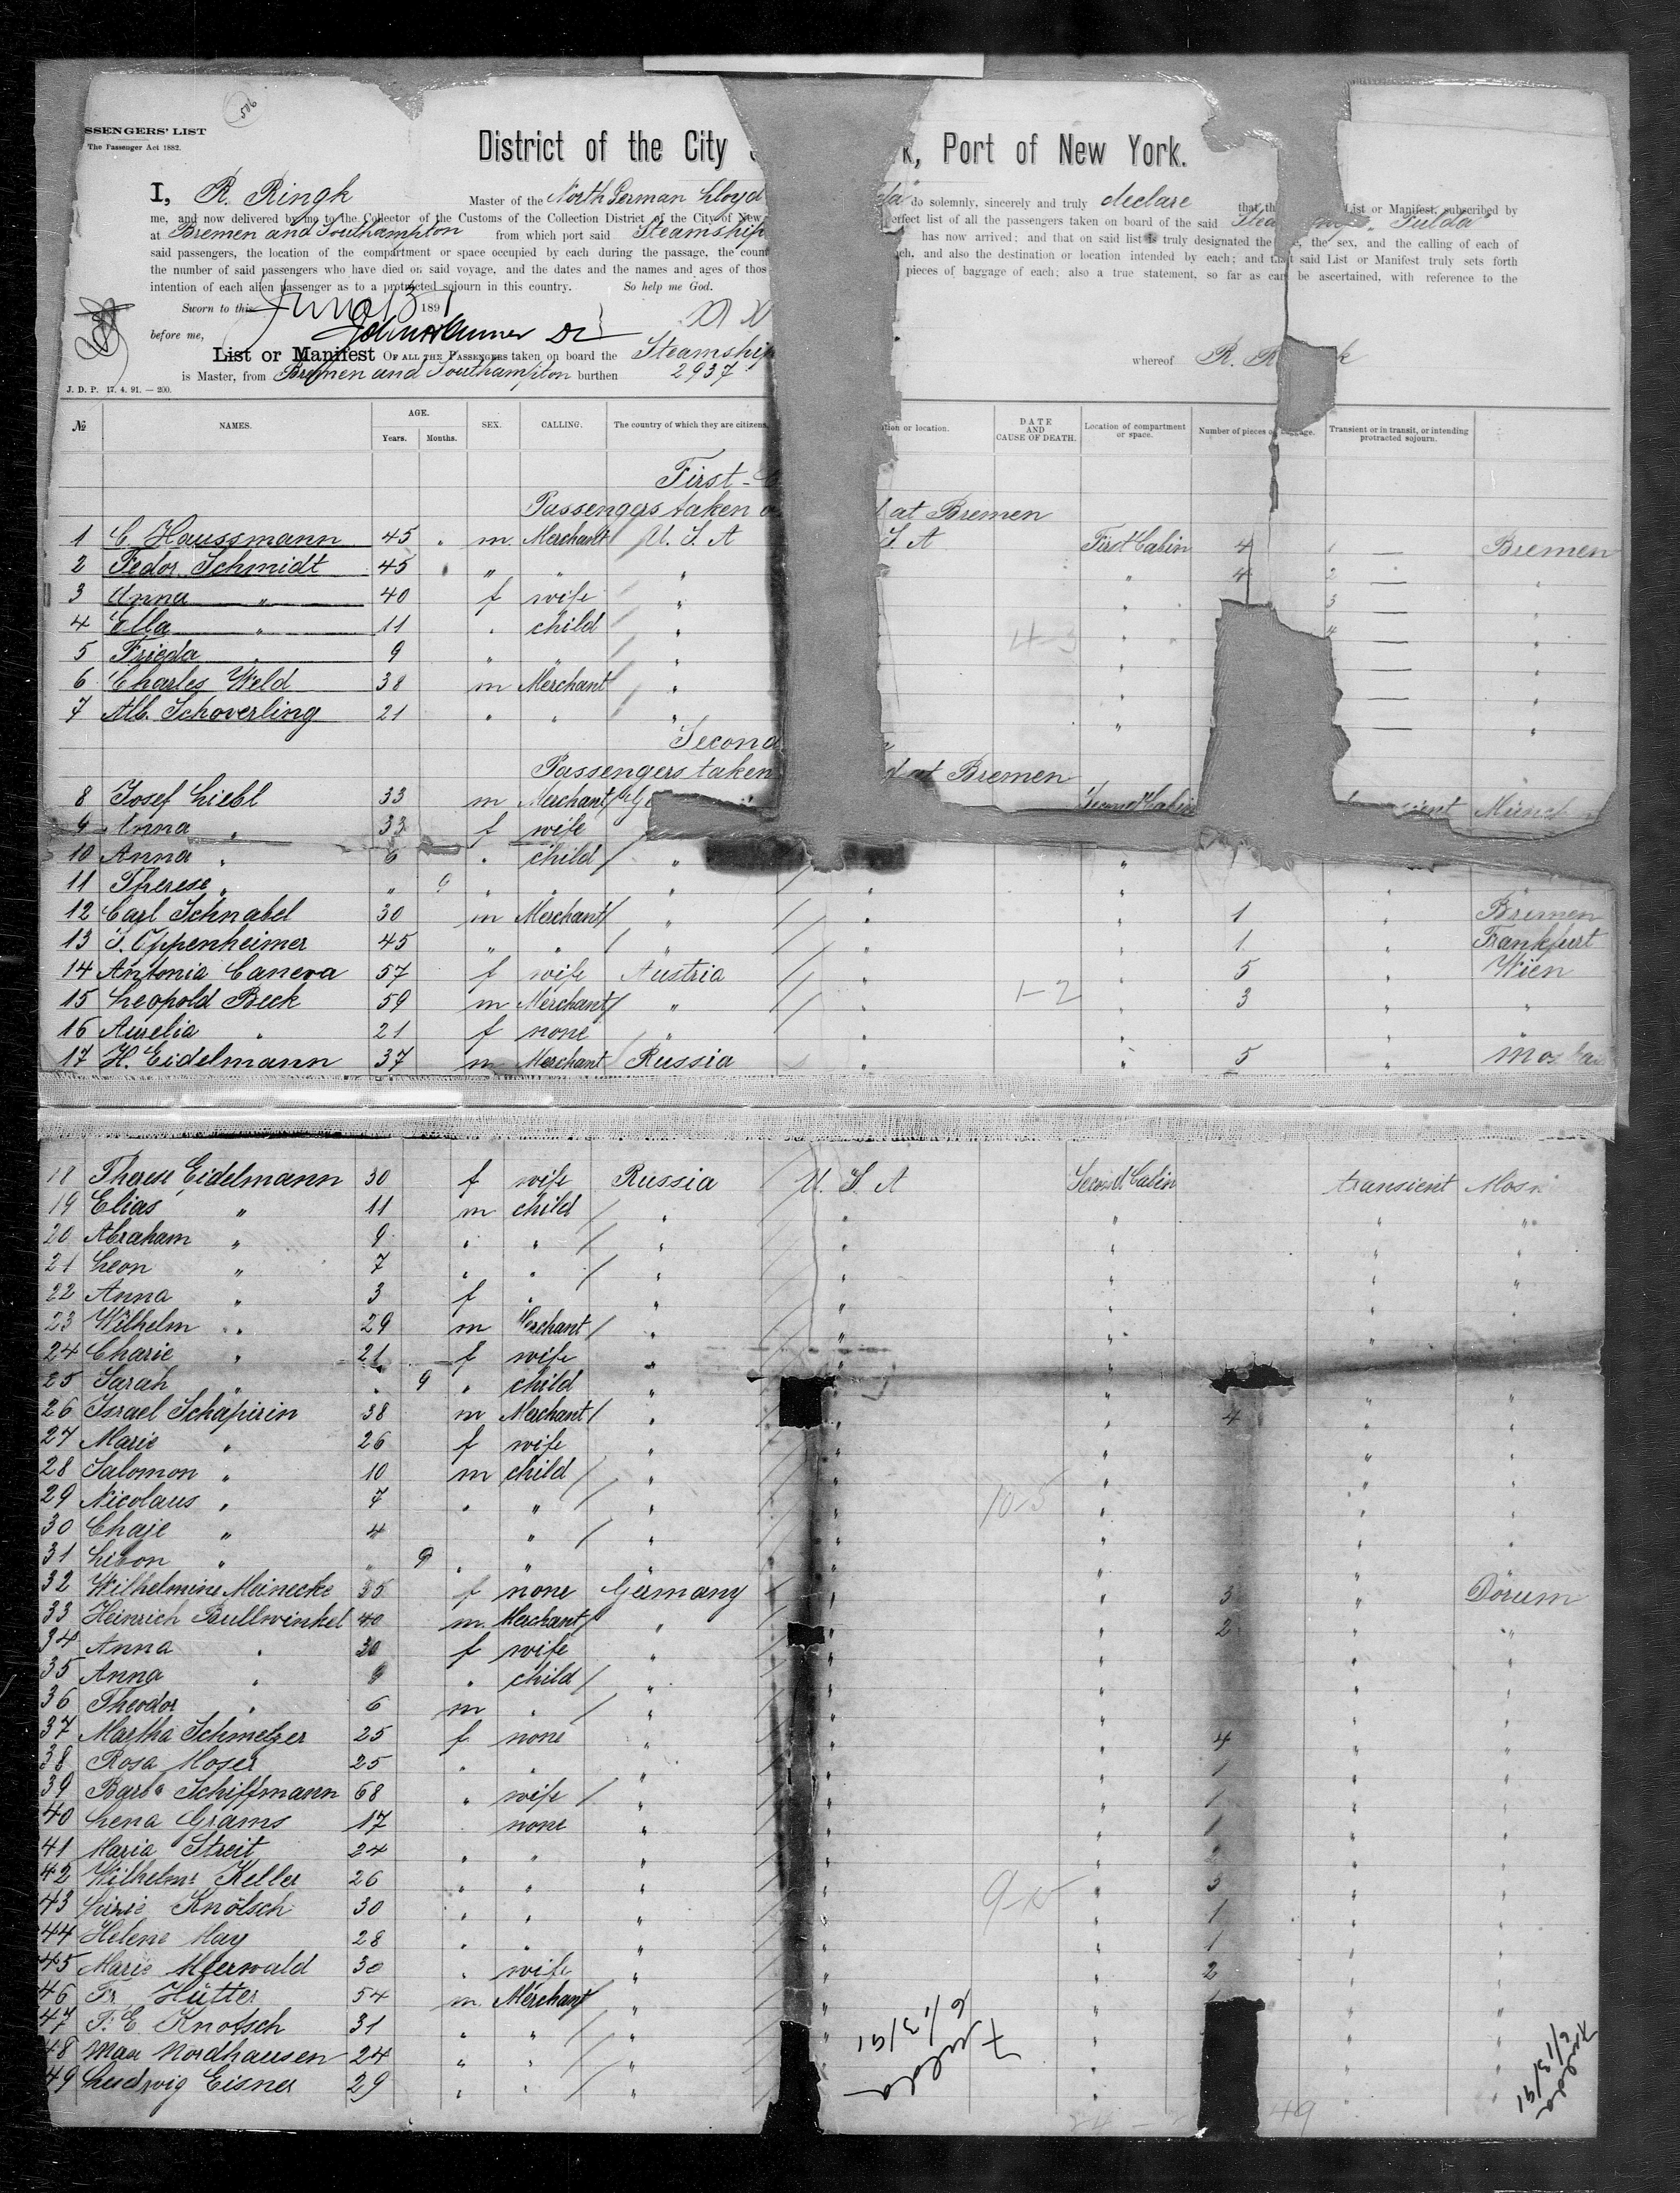 506
SSENGERS' LIST
The Passenger Act 1882.
District of the City k, Port of New York.
I, R. Ringk Master of the North German Lloyd do solemnly, sincerely and truly declare that th List or Manifest, subscribed by
me, and now delivered by me to the Collector of the Customs of the Collection District of the City of New erfect list of all the passengers taken on board of the said Steamship "Fulda"
at Bremen and Southampton from which port said Steamship has now arrived; and that on said list is truly designated the , the sex, and the calling of each of
said passengers, the location of the compartment or space occupied by each during the passage, the count ch, and also the destination or location intended by each; and that said List or Manifest truly sets forth
the number of said passengers who have died on said voyage, and the dates and the names and ages of thos pieces of baggage of each; also a true statement, so far as can be ascertained, with reference to the
intention of each alien passenger as to a protracted sojourn in this country. So help me God.
Sworn to this June 13 1891
before me,
List or Manifest OF ALL THE PASSENGERS taken on board the Steamship whereof R. R k
is Master, from Bremen and Southampton burthen 2937
J. D. P. 17. 4. 91. — 200.
№ NAMES. AGE. Years. Months. SEX. CALLING. The country of which they are citizens. tion or location. DATE AND CAUSE OF DEATH. Location of compartment or space. Number of pieces of baggage. Transient or in transit, or intending protracted sojourn.
First-C
Passengers taken o at Bremen
1 C. Haussmann 45 m. Merchant U. S. A S. A First Cabin 4 1 — Bremen
2 Fedor Schmidt 45 " " " " 4 2 — "
3 Anna " 40 f wife " " 3 — "
4 Ella " 11 " child " 4-3 " 4 — "
5 Frieda " 9 " " " " — "
6 Charles Weld 38 m Merchant " " — "
7 Alb. Schoverling 21 " " " " — "
Second
Passengers taken at Bremen
8 Josef Liebl 33 m Merchant Ge Second Cabin Münch
9 Anna " 33 f wife
10 Anna " 6 " child " " 1
11 Therese " " 9 " " " " " " "
12 Carl Schnabel 30 m Merchant " " " 1 " Bremen
13 S. Oppenheimer 45 " " " " " 1 " Frankfurt
14 Antonia Caneva 57 f wife Austria " " 5 " Wien
15 Leopold Beck 59 m Merchant " " 1-2 " 3 " "
16 Aurelia " 21 f none " " " " "
17 H. Eidelmann 37 m Merchant Russia " " 5 " Moskau
18 Therese Eidelmann 30 f wife Russia U. S. A Second Cabin transient Mosk
19 Elias " 11 m child " " " " "
20 Abraham " 9 " " " " " " "
21 Leon " 7 " " " " " " "
22 Anna " 3 f " " " " " "
23 Wilhelm " 29 m Merchant " " " " "
24 Charie " 21 f wife " " "
25 Sarah " " 9 " child " " " " "
26 Israel Schapirin 38 m Merchant " " " 4 " "
27 Marie " 26 f wife " " " " "
28 Salomon " 10 m child " " " " "
29 Nicolaus " 7 " " " " 10-5 " " "
30 Chaje " 4 " " " " " "
31 Libon " " 9 " " " " " " "
32 Wilhelmine Meinecke 35 f none Germany " " 3 " Dorum
33 Heinrich Bullwinkel 40 m. Merchant " " " 2 " "
34 Anna " 30 f wife " " " " "
35 Anna " 9 " child " " " " "
36 Theodor " 6 m " " " " " "
37 Martha Schmelzer 25 f none " " " 4 " "
38 Rosa Moser 25 " " " " " 1 " "
39 Barba Schiffmann 68 " wife " " " 1 " "
40 Lena Grams 17 none " " " 1 " "
41 Maria Streit 24 " " " " " 2 " "
42 Wilhelm. Keller 26 " " " " " 3 " "
43 Knölsch 30 " " " " " 1 " "
44 Helene May 28 " " " " " 1 " "
45 Marie 30 " wife " " " 2 " "
46 Fr. Hütter 54 m. Merchant " " " " "
47 F. E. Knotsch 31 " " " " " "
48 Max Nordhausen 24 " " " " " "
49 Ludwig Eisner 29 " " " " " "
Fulda
6/13/91
Fulda
6/13/91